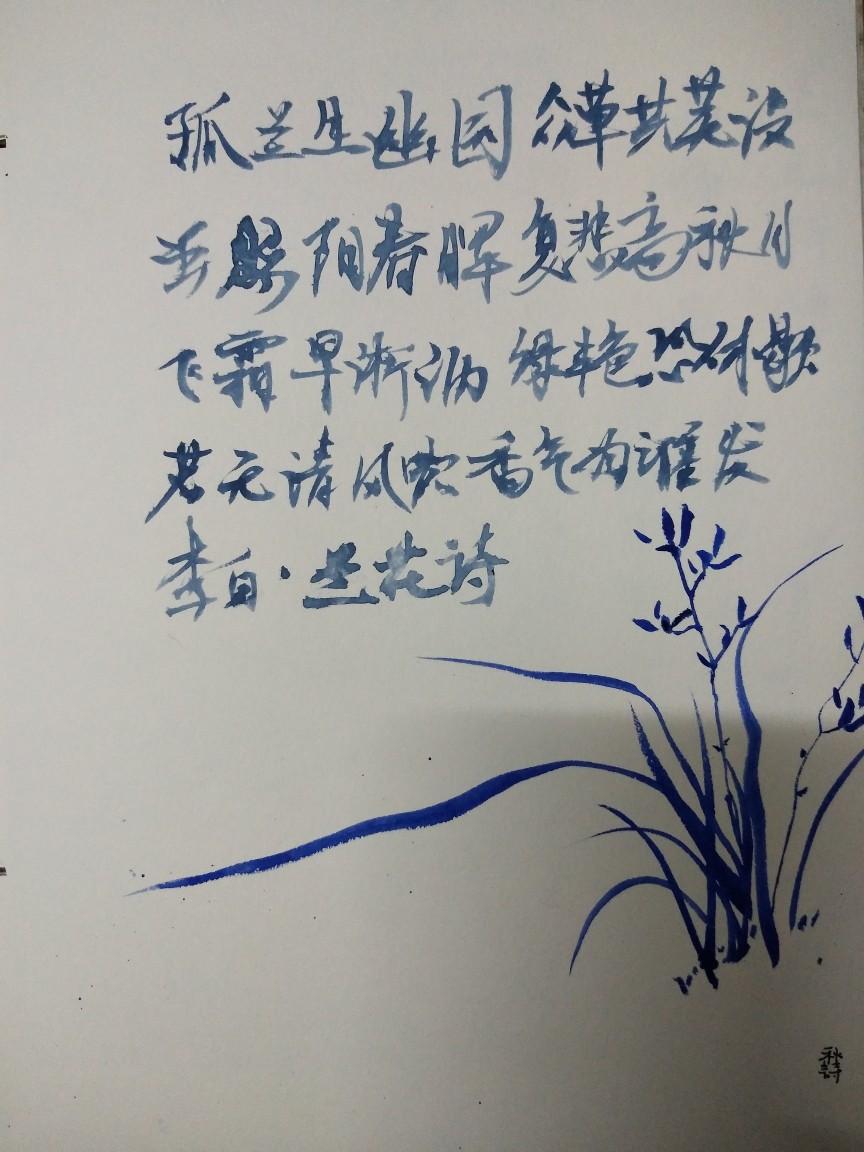 孤兰生幽园 众草共芜没
虽照阳春晖 复悲高秋月
飞霜早淅沥 绿艳恐休歇
若无清风吹 香气为谁发
李白·兰花诗
秋诗